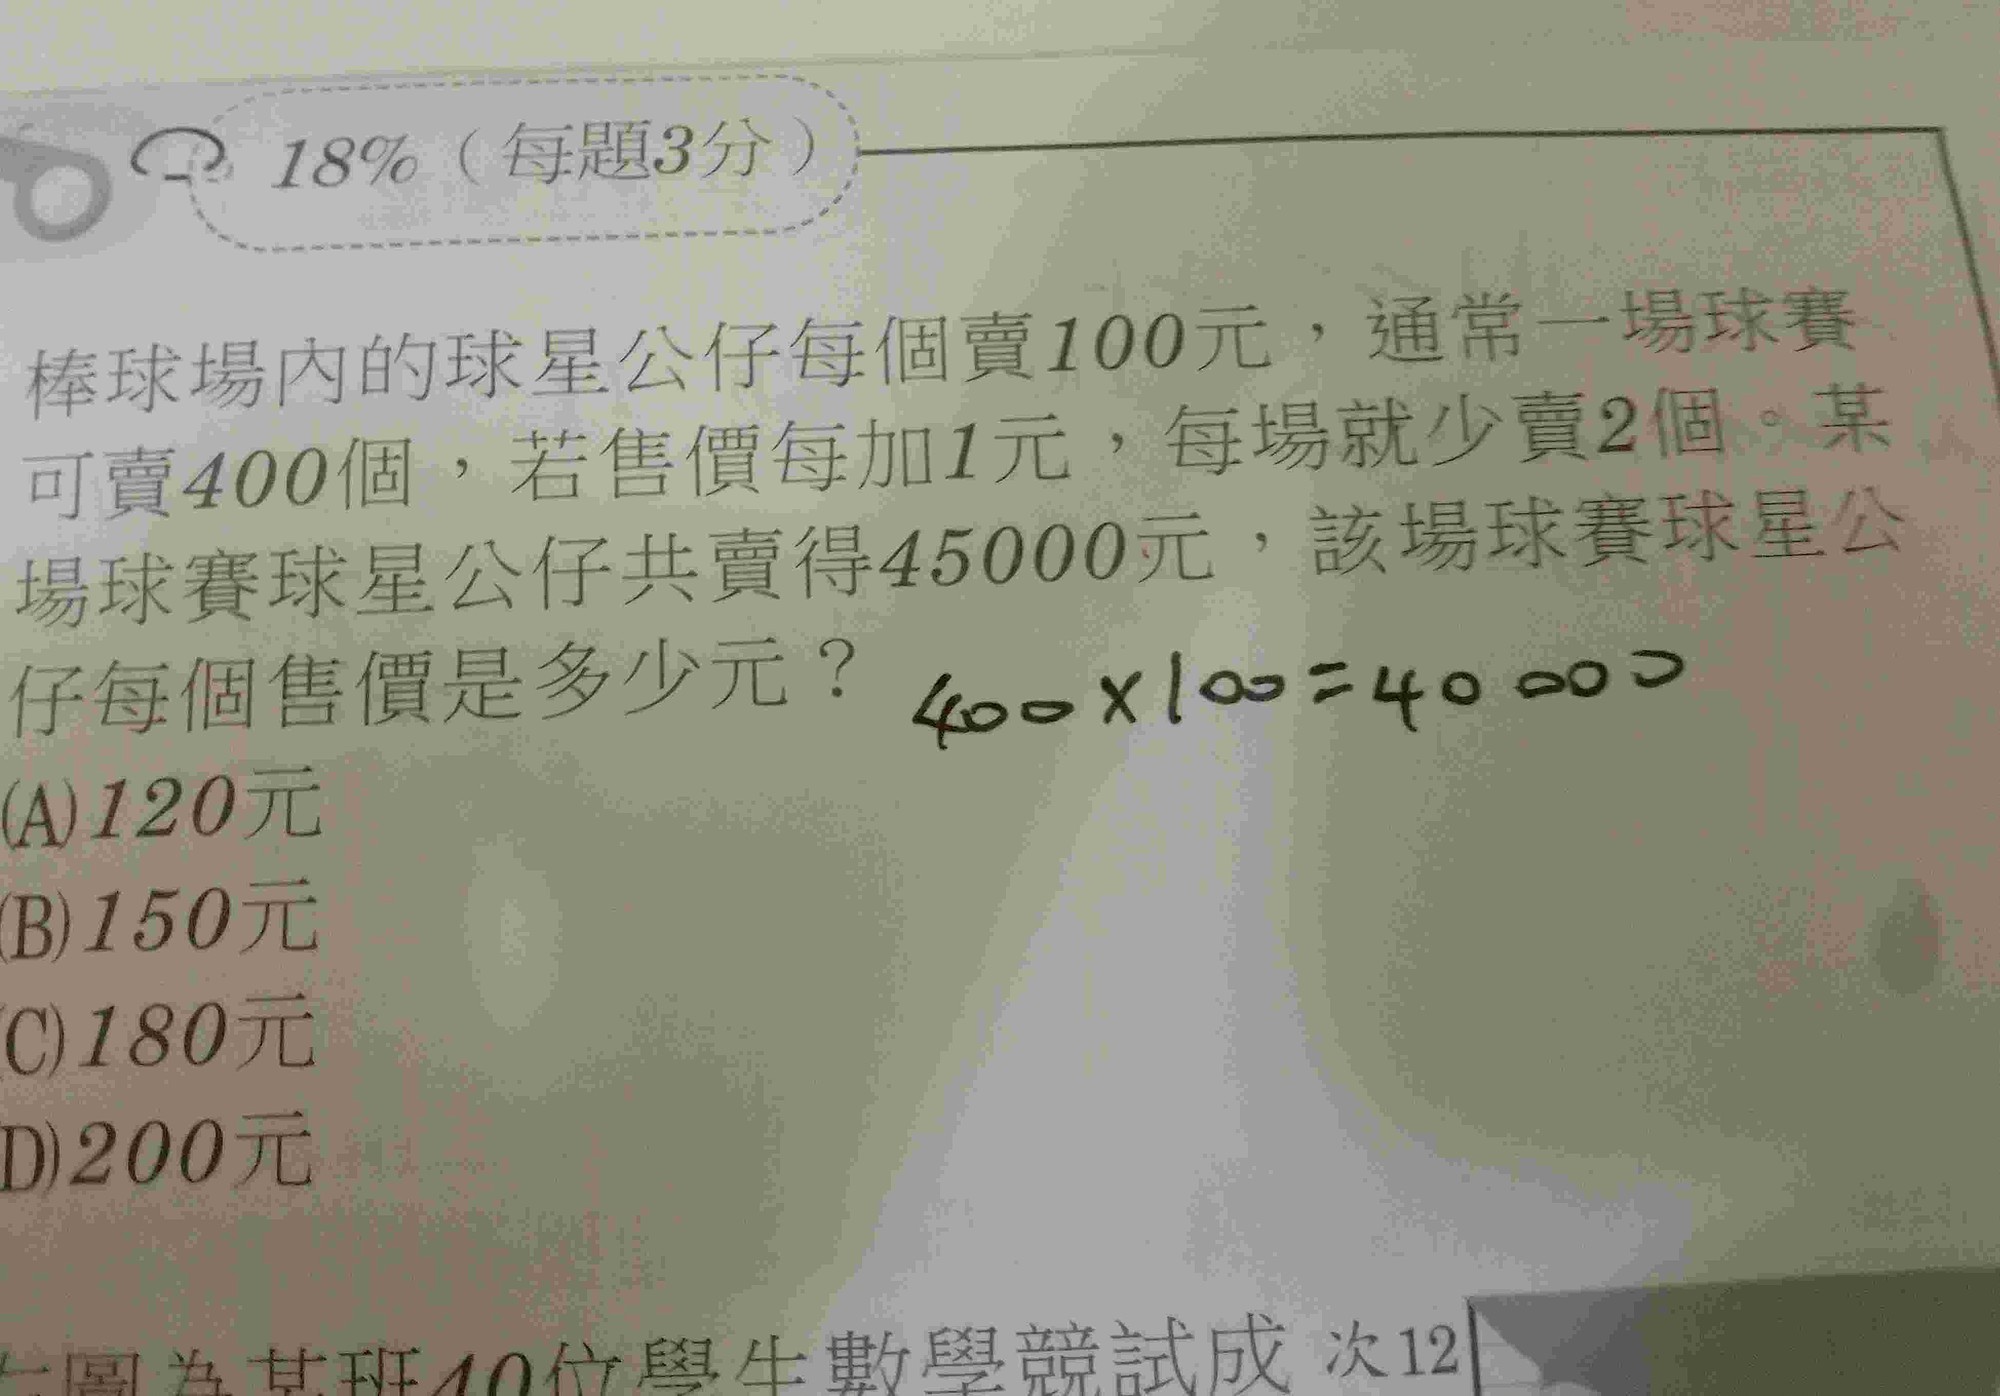 18%（每題3分）
棒球場內的球星公仔每個賣100元，通常一場球賽
可賣400個，若售價每加1元，每場就少賣2個。某
場球賽球星公仔共賣得45000元，該場球賽球星公
仔每個售價是多少元？ 400×100=40000
(A)120元
(B)150元
(C)180元
(D)200元
圖為某班40位學生數學競試成 次12